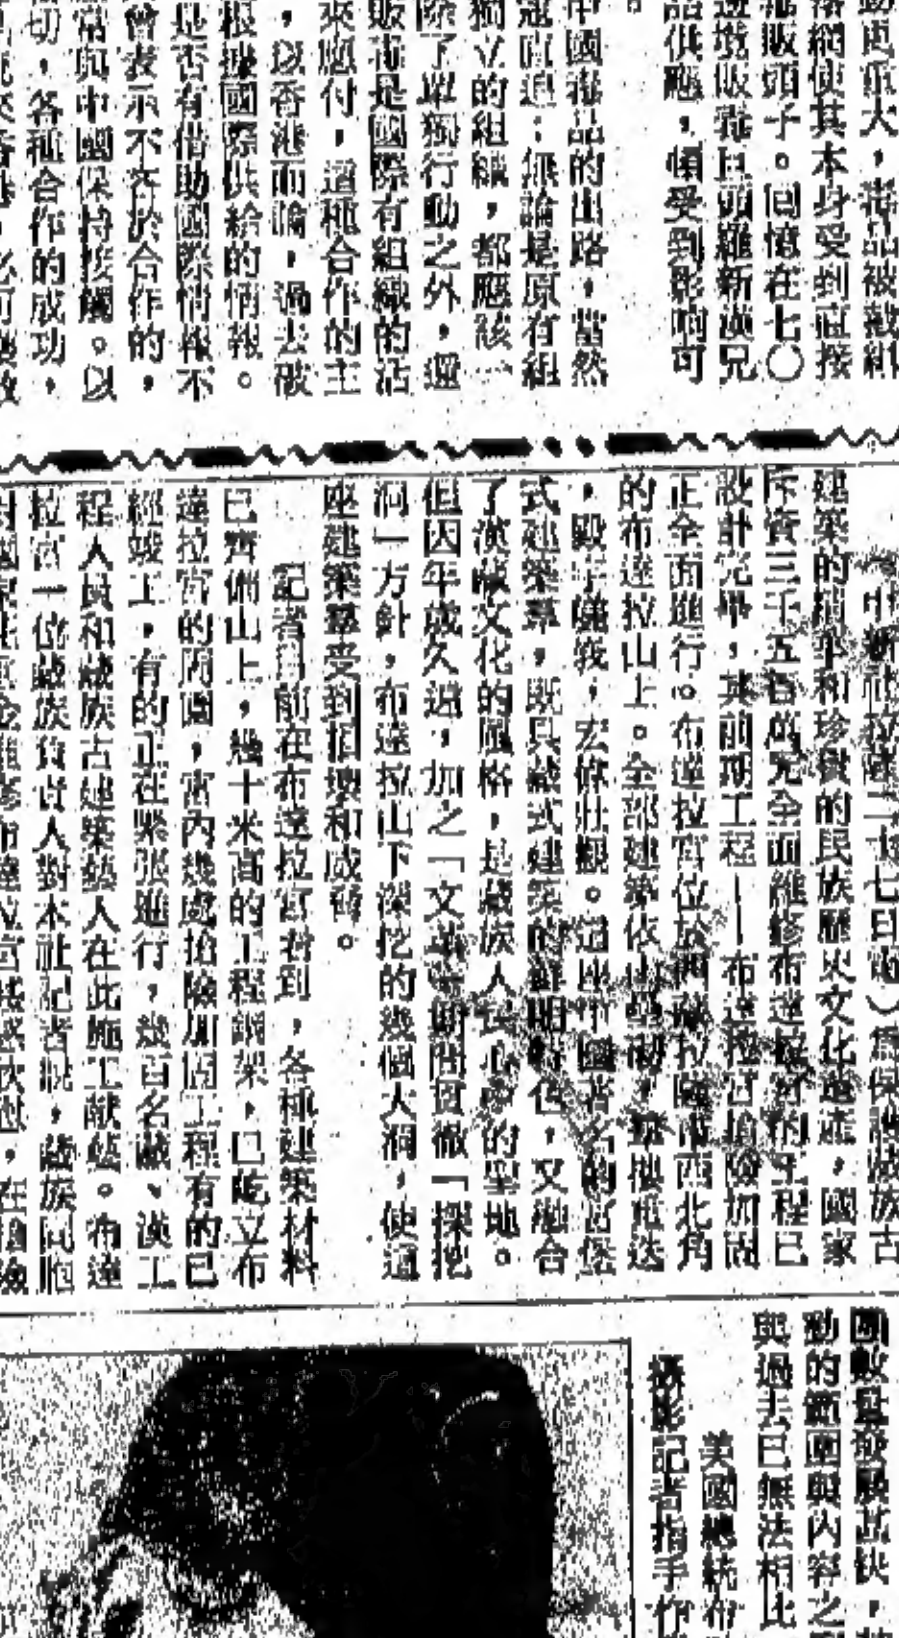 動更重大，毒品被截組
落網使其本身受到直接
販頭子。回憶在七〇
邊境販毒巨頭羅新漢兄
品供應，頓受到影响可
中國毒品的出路，當然
直追；無論是原有組
獨立的組織，都應該一
除了單獨行動之外，還
販毒是國際有組織的活
來應付，這種合作的主
，以香港而論，過去破
根據國際供給的情報。
是否有借助國際情報不
曾表示不吝於合作的，
常與中國保持接觸。以
切，各種合作的成功，
（中新社拉薩二十七日電）為保護藏族古
建築的精華和珍貴的民族歷史文化遺產，國家
斥資三千五百萬元全面維修布達拉宮的工程已
設計完畢，其前期工程——布達拉宮搶險加固
正全面進行。布達拉宮位於西藏拉薩市西北角
的布達拉山上。全部建築依山壘砌，群樓重迭
，殿宇巍峩，宏偉壯觀。這座中國著名的宮堡
式建築羣，既具藏式建築的鮮明特色，又融合
了漢藏文化的風格，是藏族人民心中的聖地。
但因年歲久遠，加之「文革」期間貫徹「深挖
洞」方針，布達拉山下深挖的幾個大洞，使這
座建築羣受到損壞和威脅。
記者日前在布達拉宮看到，各種建築材料
已齊備山上，幾十米高的工程鋼架，已屹立布
達拉宮的周圍，宮內幾處搶險加固工程有的已
經竣工，有的正在緊張進行，幾百名藏、漢工
程人員和藏族古建築藝人在此施工献藝。布達
拉宮一位藏族負責人對本社記者說，藏族同胞
對國家花重金維修布達拉宮感慨欣慰，在搶險
團數量發展甚快，
動的範圍與內容之
與過去已無法相比
美國總統布
攝影記者指手作